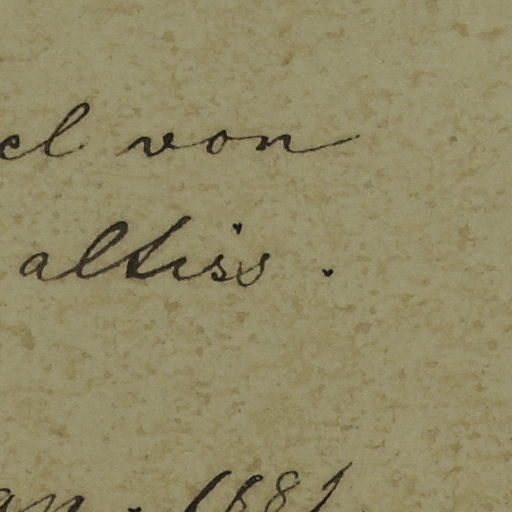 el von
altiss.
an. 1881